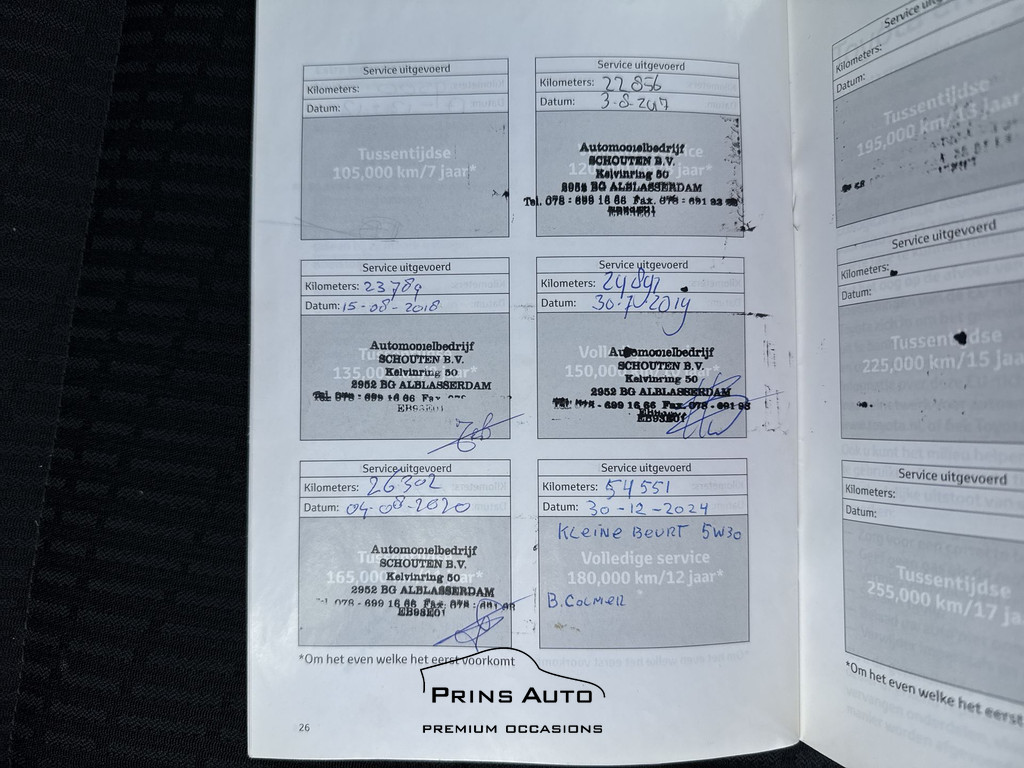 Service uitgevoerd
Kilometers:
Datum:
Tussentijdse
105,000 km/7 jaar*
Service uitgevoerd
Kilometers: 22856
Datum: 3-8-2017
Automobielbedrijf
SCHOUTEN B.V.
Kelvinring 50
2952 BG ALBLASSERDAM
Tel. 078 - 699 16 66 Fax. 078 - 691 93
EB93E01
Service uitgevoerd
Kilometers: 23789
Datum: 15-08-2018
135,000
Automobielbedrijf
SCHOUTEN B.V.
Kelvinring 50
2952 BG ALBLASSERDAM
Tel. 078 - 699 16 66 Fax
EB93E01
Service uitgevoerd
Kilometers:
Datum: 30-7-2019
Volledige
150,000
Automobielbedrijf
SCHOUTEN B.V.
Kelvinring 50
2952 BG ALBLASSERDAM
699 16 66 Fax. 078 - 691 93
EB93E01
Service uitgevoerd
Kilometers: 26302
Datum: 04-08-2020
165,000
Automobielbedrijf
SCHOUTEN B.V.
Kelvinring 50
2952 BG ALBLASSERDAM
078 - 699 16 66 Fax.
EB93E01
Service uitgevoerd
Kilometers: 54551
Datum: 30-12-2024
KLEINE BEURT 5W30
Volledige service
180,000 km/12 jaar*
B. COLMER
*Om het even welke het eerst voorkomt
26
PRINS AUTO
PREMIUM OCCASIONS
Service uitgevoerd
Kilometers:
Datum:
Tussentijdse
195,000 km/13 jaar*
Service uitgevoerd
Kilometers:
Datum:
Tussentijdse
225,000 km/15 jaar
Service uitgevoerd
Kilometers:
Datum:
Tussentijdse
255,000 km/17
*Om het even welke het eerst